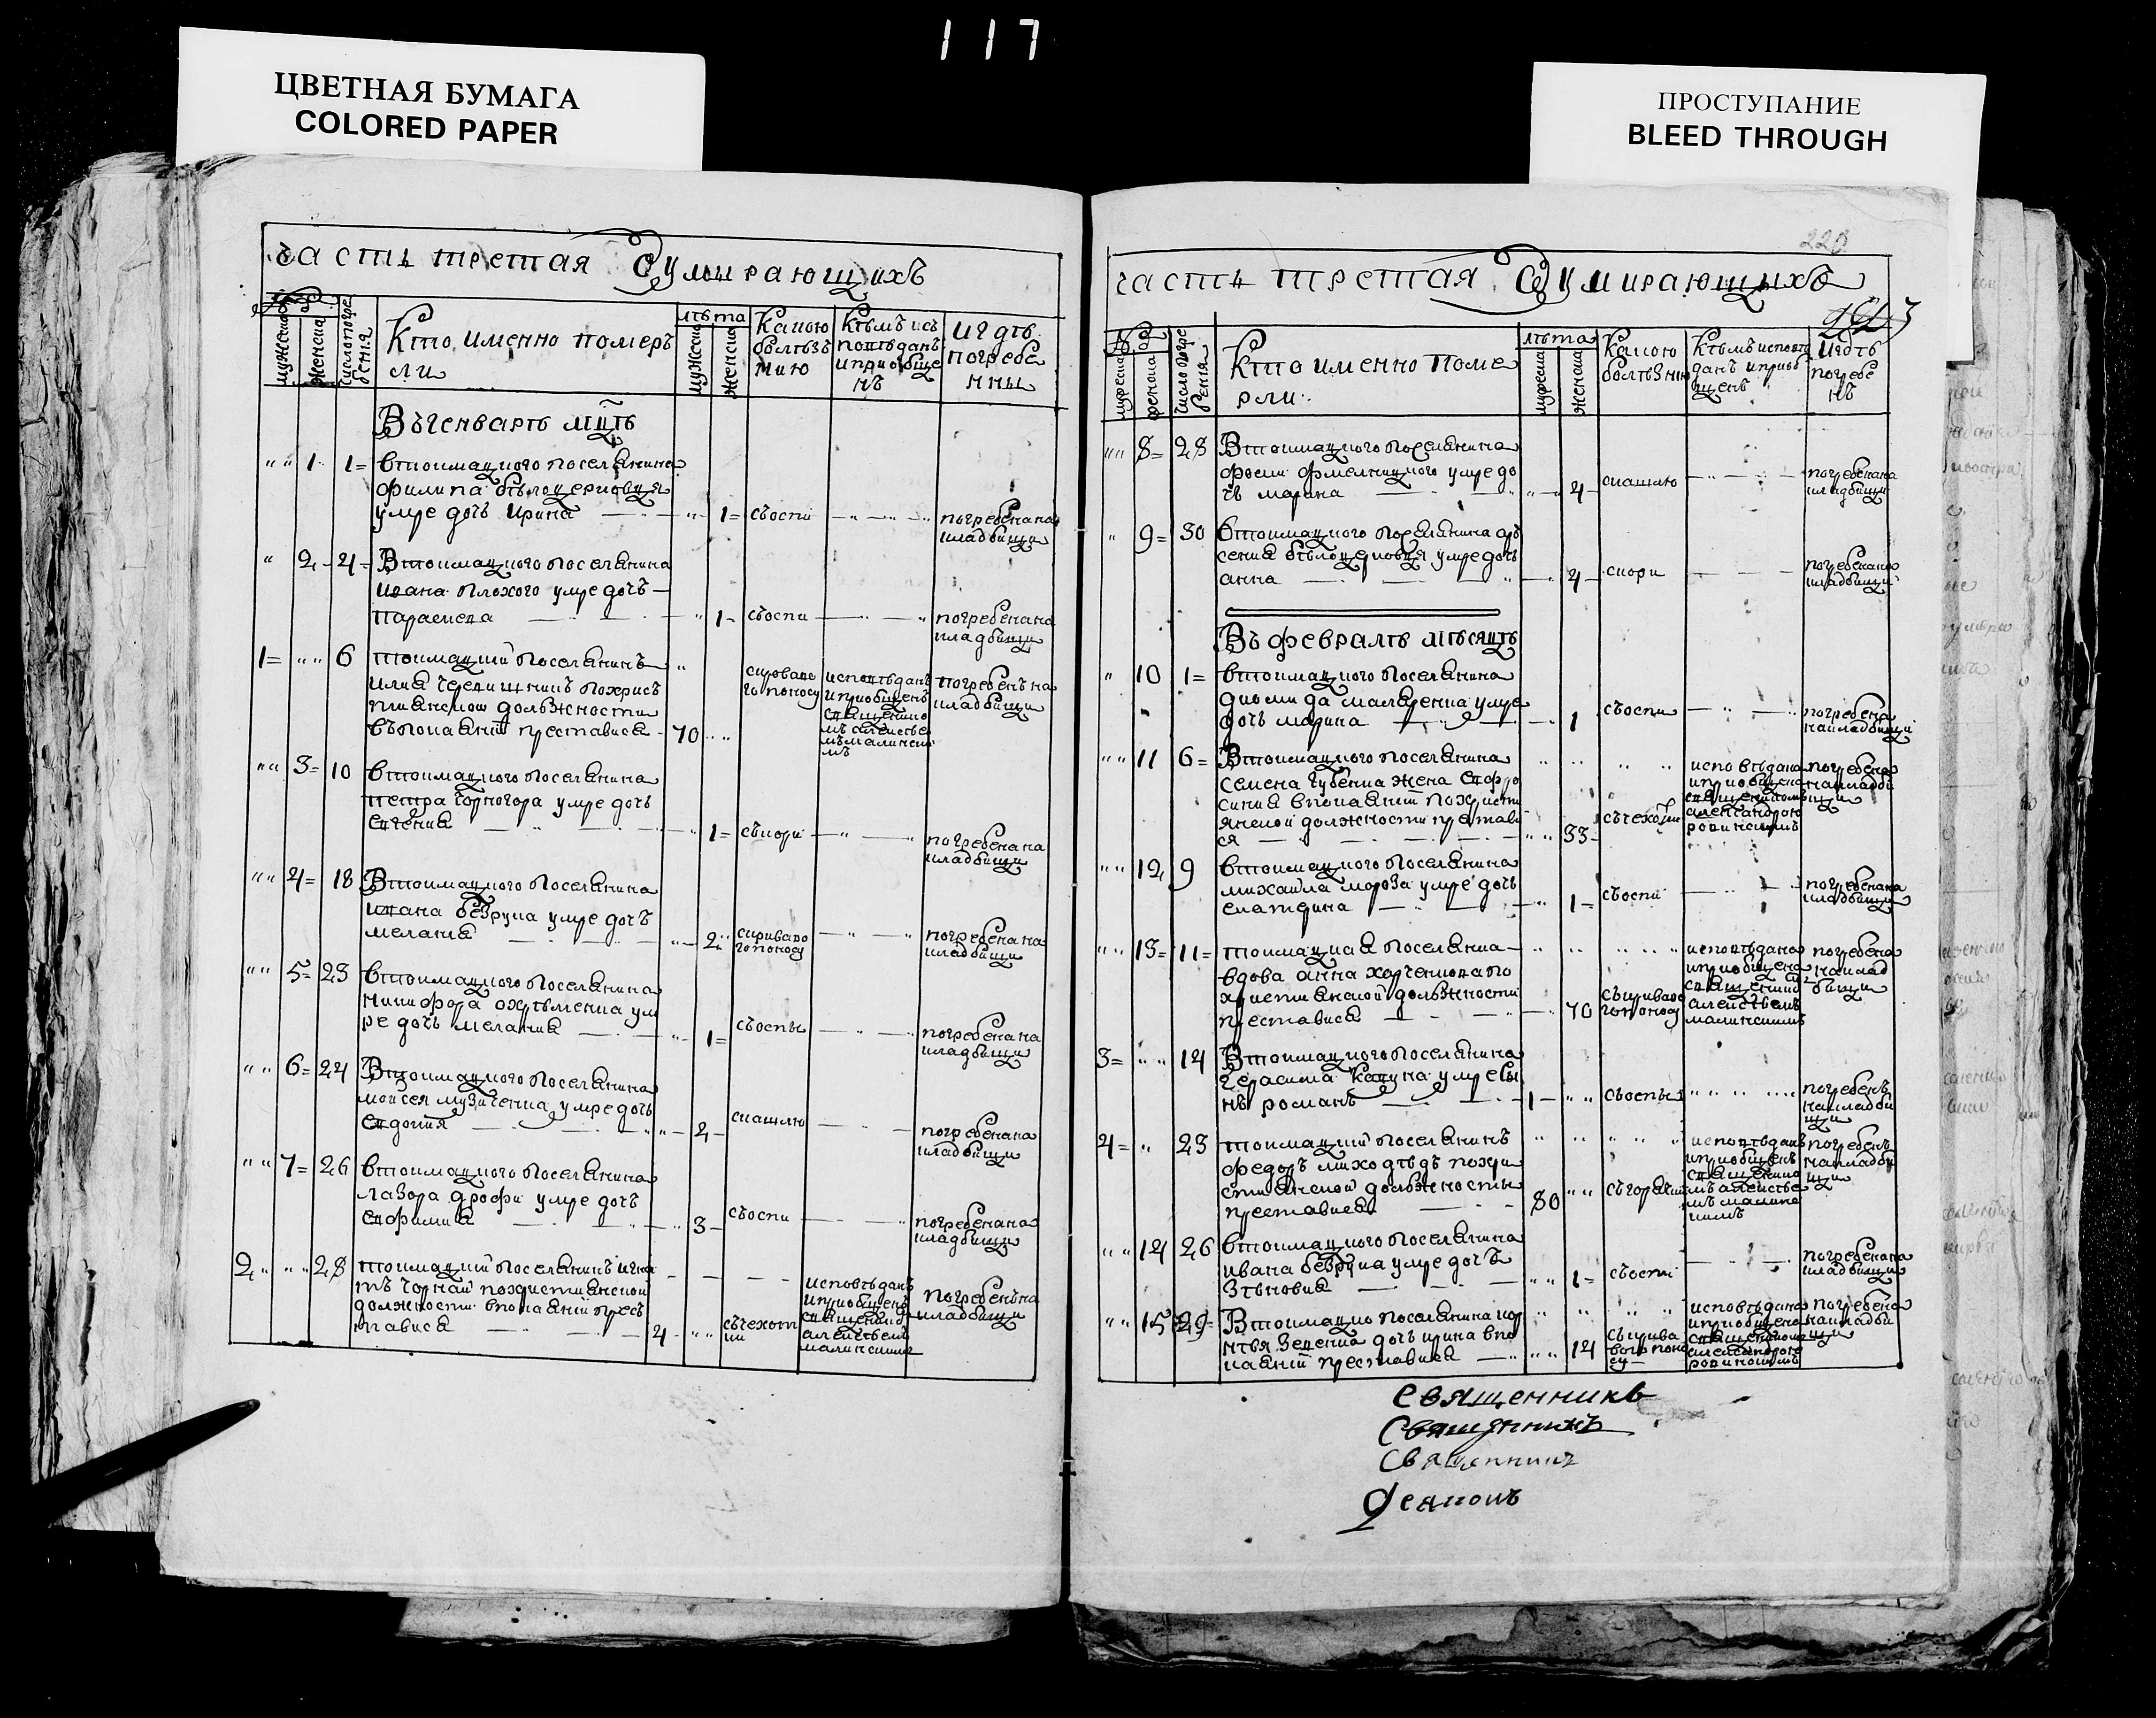 117
ЦВЕТНАЯ БУМАГА
COLORED PAPER
ПРОСТУПАНИЕ
BLEED THROUGH
220
часть третая О умирающихъ
мужеска женска
число погребения
Кто именно померъ
ли
лѣта
мужеска женска
Какою
болѣзъ
нию
Кѣмъ исъ
повѣданъ
и приобще
нъ
и гдѣ
погребе
нны
Въ генварѣ мцѣ
" " 1 1=
втокмацкого поселянина
филипа бѣлоцерковця
умре дочь ирина
1= съоспи
погребена на
кладбищи
" 2 - 4=
Втокмацкого поселянина
ивана плохого умре дочъ
параскева
1- съоспи
погребена на
кладбищи
1= " " 6
токмацкий поселянинъ
илия
поприсъ
тианской должности
въпокаянии преставися - 70
кровава
го поносу
исповѣданъ
и приобщенъ
священико
мъ алексѣе
мъ малински
мъ
погребенъ на
кладбищи
" " 3= 10
втокмацкого поселянина
петра чорногора умре дочъ
евгения
1= съкори
погребена на
кладбищи
" " 4= 18
Втокмацкого поселянина
ивана безрука умре дочъ
мелания
2 скриваво
го поносу
погребена на
кладбищи
" " 5= 23
втокмацкого поселянина
никифора охрѣменка ум
ре дочъ мелания
1= съоспы
погребена на
кладбищи
" " 6= 24
Втокмацкого поселянина
мойсея музиченка умре дочъ
евдокия
2- скашлю
погребена на
кладбищи
" " 7= 26
втокмацкого поселянина
лазора дрофи умре дочъ
евфимия
3- съоспи
погребена на
кладбищи
2 " " " 28
токмацкий поселянинъ игна
тъ чорнай похристианской
должности впокаянии пресъ
тависа
4 - " " съчехот
ки
исповѣданъ
и приобщенъ
священико
алексѣемъ
малинскимъ
погребенъ на
кладбищи
часть третая О умирающихъ
мужеска женска
число погре
бения
Кто именно поме
рли
лѣта
мужеска женска
Какою
болѣзнию
Кѣмъ исповѣ
данъ и приоб
щенъ
и гдѣ
погребе
нъ
" " 8= 28
Втокмацкого поселянина
умре до
чъ марина
4 скашлю
погребена на
кладбищи
" 9= 30
втокмацкого поселянина аръ
сения бѣлоцерковця умре дочъ
анна
4 скори
погребена на
кладбищи
Въ февралѣ мѣсяцѣ
" 10 1=
втокмацкого поселянина
умре
дочъ марина
1 съоспи
погребена
на кладбищи
" " 11 6=
Втокмацкого поселянина
семена губенка жена евфро
синия впокаянии похристи
янской должности престави
ся
" " 33- съчехотки
исповѣдана
и приобщена
священикомъ
александрою
ровинскимъ
погребена
на кладби
щи
" " 12 9
втокмацкого поселянина
михаила мороза умре дочъ
екатерина
1= съоспи
погребена на
кладбищи
" " 13= 11=
токмацкая поселянка
вдова анна харченкова по
християнской должности
преставися
70 съкриваво
го поносу
исповѣдана
и приобщена
священики
алексѣемъ
малинскимъ
погребена
на клад
бищи
3= " " 14
Втокмацкого поселянина
герасима кавуна умре сы
нъ романъ
1 - " " съоспы
погребенъ
на кладби
щи
4= " 23
токмацкий поселянинъ
федоръ лиходѣдъ похри
стианской должности
преставися
80 " "
исповѣданъ
и приобщенъ
священико
мъ алексѣе
мъ малинс
кимъ
погребенъ
на кладби
щи
" " 14 26
втокмацкого поселянина
ивана безрука умре дочъ
зѣновия
" " 1= съоспи
погребена на
кладбищи
" " 15 29=
Втокмацко поселянина кор
нѣя зеленка дочъ ирина впо
каянии преставися
" " 14 съкрива
вого поно
су
исповѣдана
и приобщена
священикомъ
александрою
ровинскимъ
погребена
на кладби
щи
Священникъ
Священникъ
Священникъ
Диаконъ